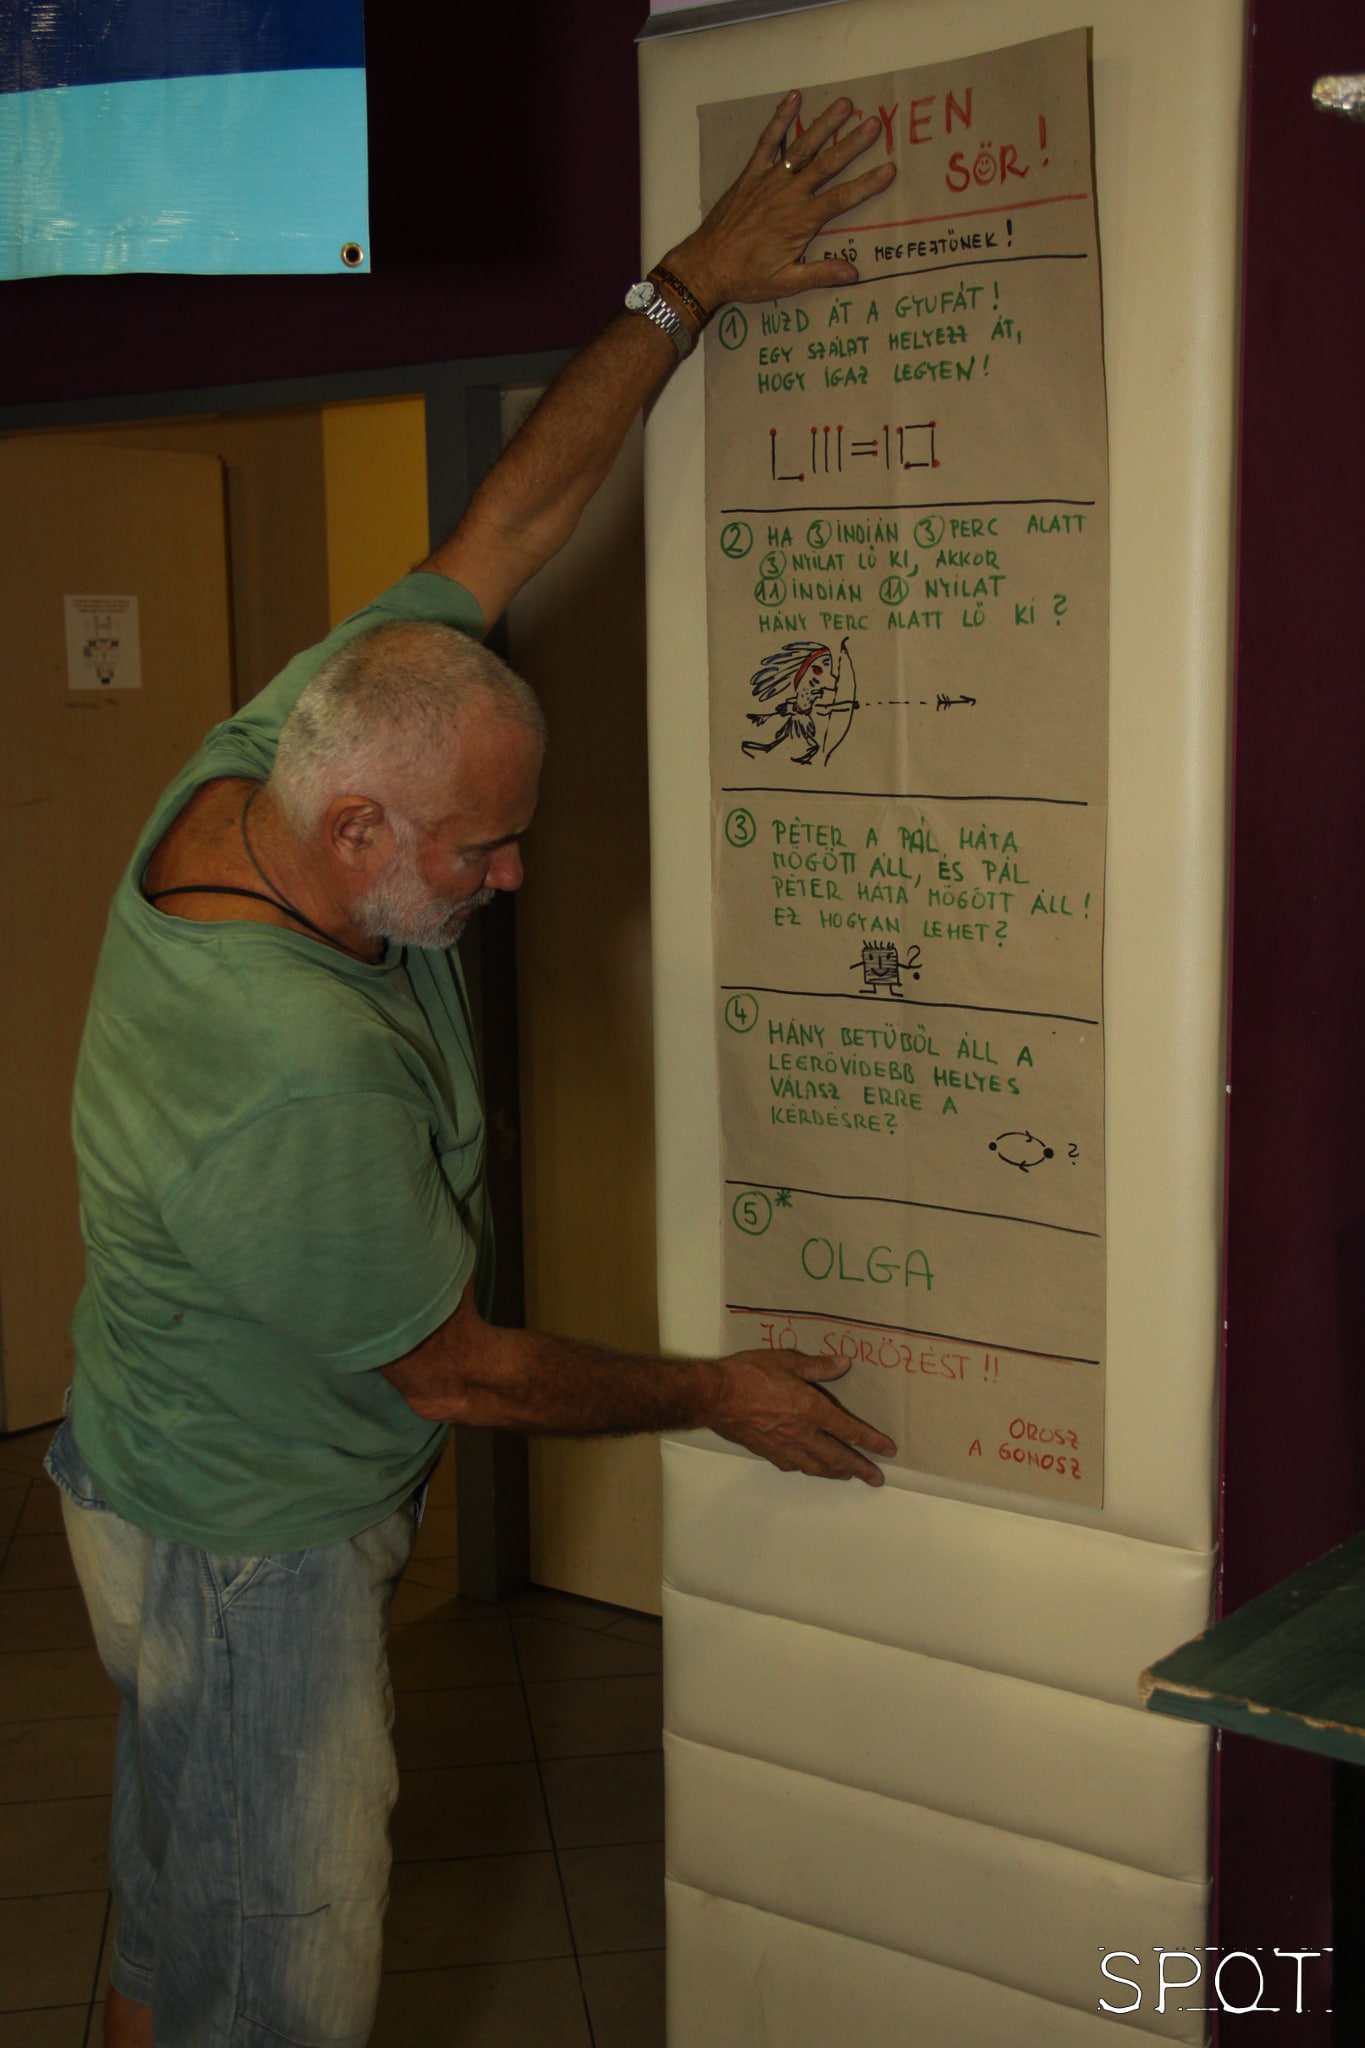 SÖR!
ELSŐ MEGFEJTŐNEK!
① HÚZD ÁT A GYUFÁT!
EGY SZÁLAT HELYEZZ ÁT,
HOGY IGAZ LEGYEN!
② HA ③ INDIÁN ③ PERC ALATT
③ NYILAT LŐ KI, AKKOR
⑪ INDIÁN ⑪ NYILAT
HÁNY PERC ALATT LŐ KI?
③ PÉTER A PÁL HÁTA
MÖGÖTT ÁLL, ÉS PÁL
PÉTER HÁTA MÖGÖTT ÁLL!
EZ HOGYAN LEHET?
?
④ HÁNY BETŰBŐL ÁLL A
LEGRÖVIDEBB HELYES
VÁLASZ ERRE A
KÉRDÉSRE?
?
⑤*
OLGA
JÓ SÖRÖZÉST!!
OROSZ
A GONOSZ
SPOT